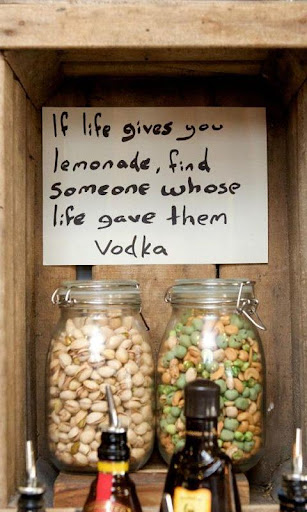 If life gives you
lemonade, find
someone whose
life gave them
Vodka